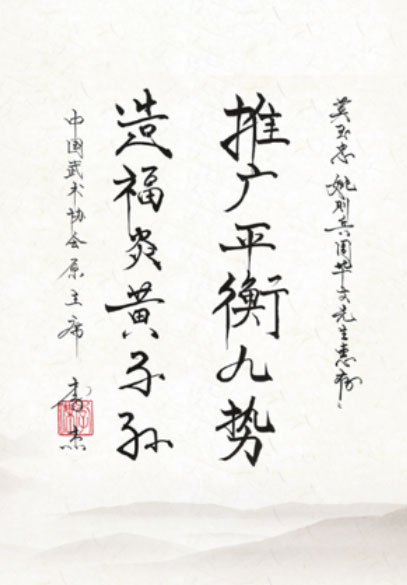 玉忠 姚则兵周华文先生惠
推广平衡九势
造福炎黄子孙
中国武术协会原主席 李杰